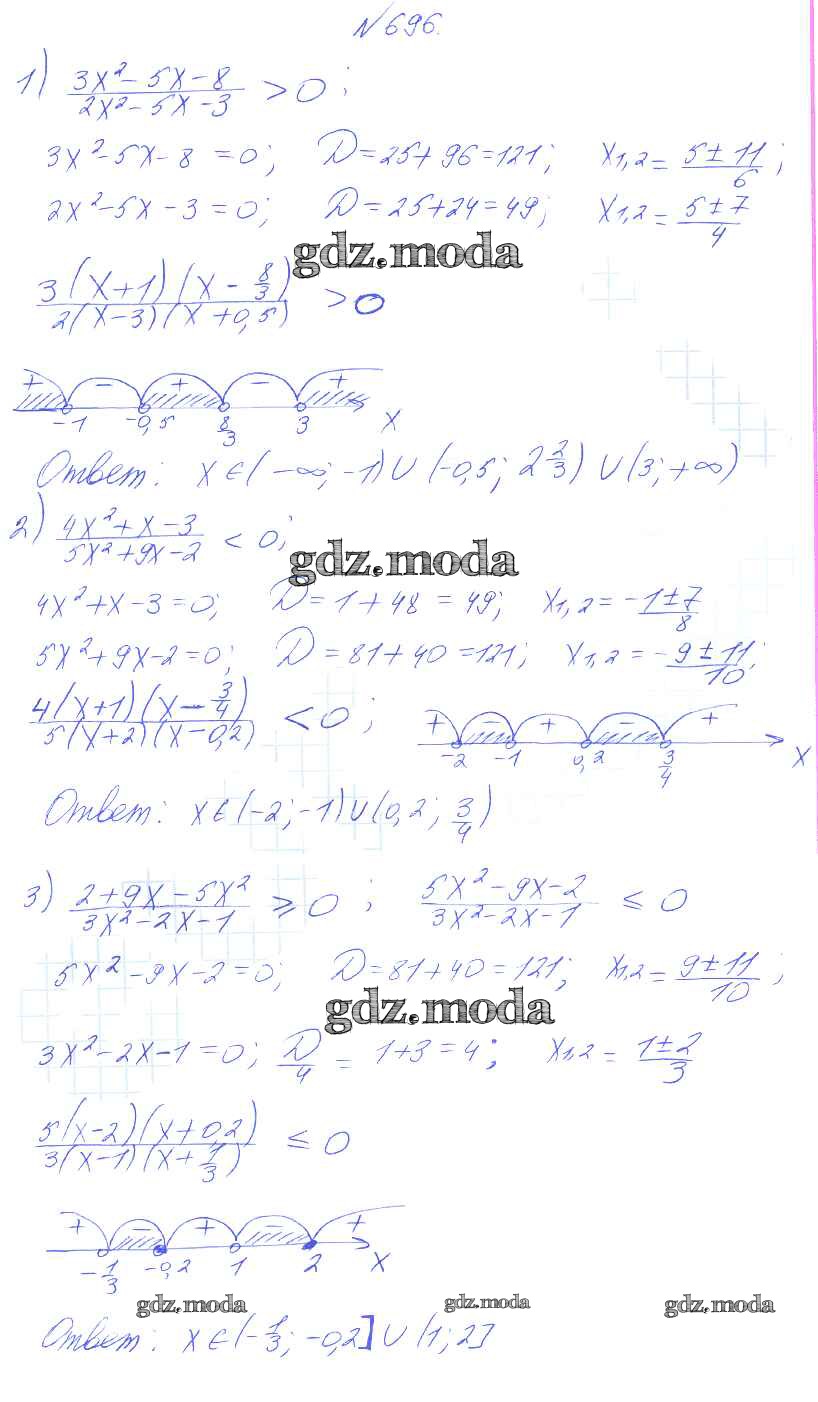 N 696.
1) (3x² - 5x - 8)/(2x² - 5x - 3) > 0;
3x² - 5x - 8 = 0; D = 25 + 96 = 121; x1,2 = (5 ± 11)/6;
2x² - 5x - 3 = 0; D = 25 + 24 = 49; x1,2 = (5 ± 7)/4
gdz.moda
3(x+1)(x - 8/3)/2(x-3)(x+0,5) > 0
+ - + - +
-1 -0,5 8/3 3 x
Ответ: x ∈ (-∞; -1) ∪ (-0,5; 2 2/3) ∪ (3; +∞)
2) (4x² + x - 3)/(5x² + 9x - 2) < 0;
gdz.moda
4x² + x - 3 = 0; D = 1 + 48 = 49; x1,2 = (-1 ± 7)/8
5x² + 9x - 2 = 0; D = 81 + 40 = 121; x1,2 = (-9 ± 11)/10;
4(x+1)(x - 3/4)/5(x+2)(x-0,2) < 0;
+ - + - +
-2 -1 0,2 3/4 x
Ответ: x ∈ (-2; -1) ∪ (0,2; 3/4)
3) (2 + 9x - 5x²)/(3x² - 2x - 1) ≥ 0; (5x² - 9x - 2)/(3x² - 2x - 1) ≤ 0
5x² - 9x - 2 = 0; D = 81 + 40 = 121; x1,2 = (9 ± 11)/10;
gdz.moda
3x² - 2x - 1 = 0; D/4 = 1 + 3 = 4; x1,2 = (1 ± 2)/3
5(x-2)(x+0,2)/3(x-1)(x + 1/3) ≤ 0
+ - + - +
-1/3 -0,2 1 2 x
gdz.moda gdz.moda gdz.moda
Ответ: x ∈ (-1/3; -0,2] ∪ (1; 2]